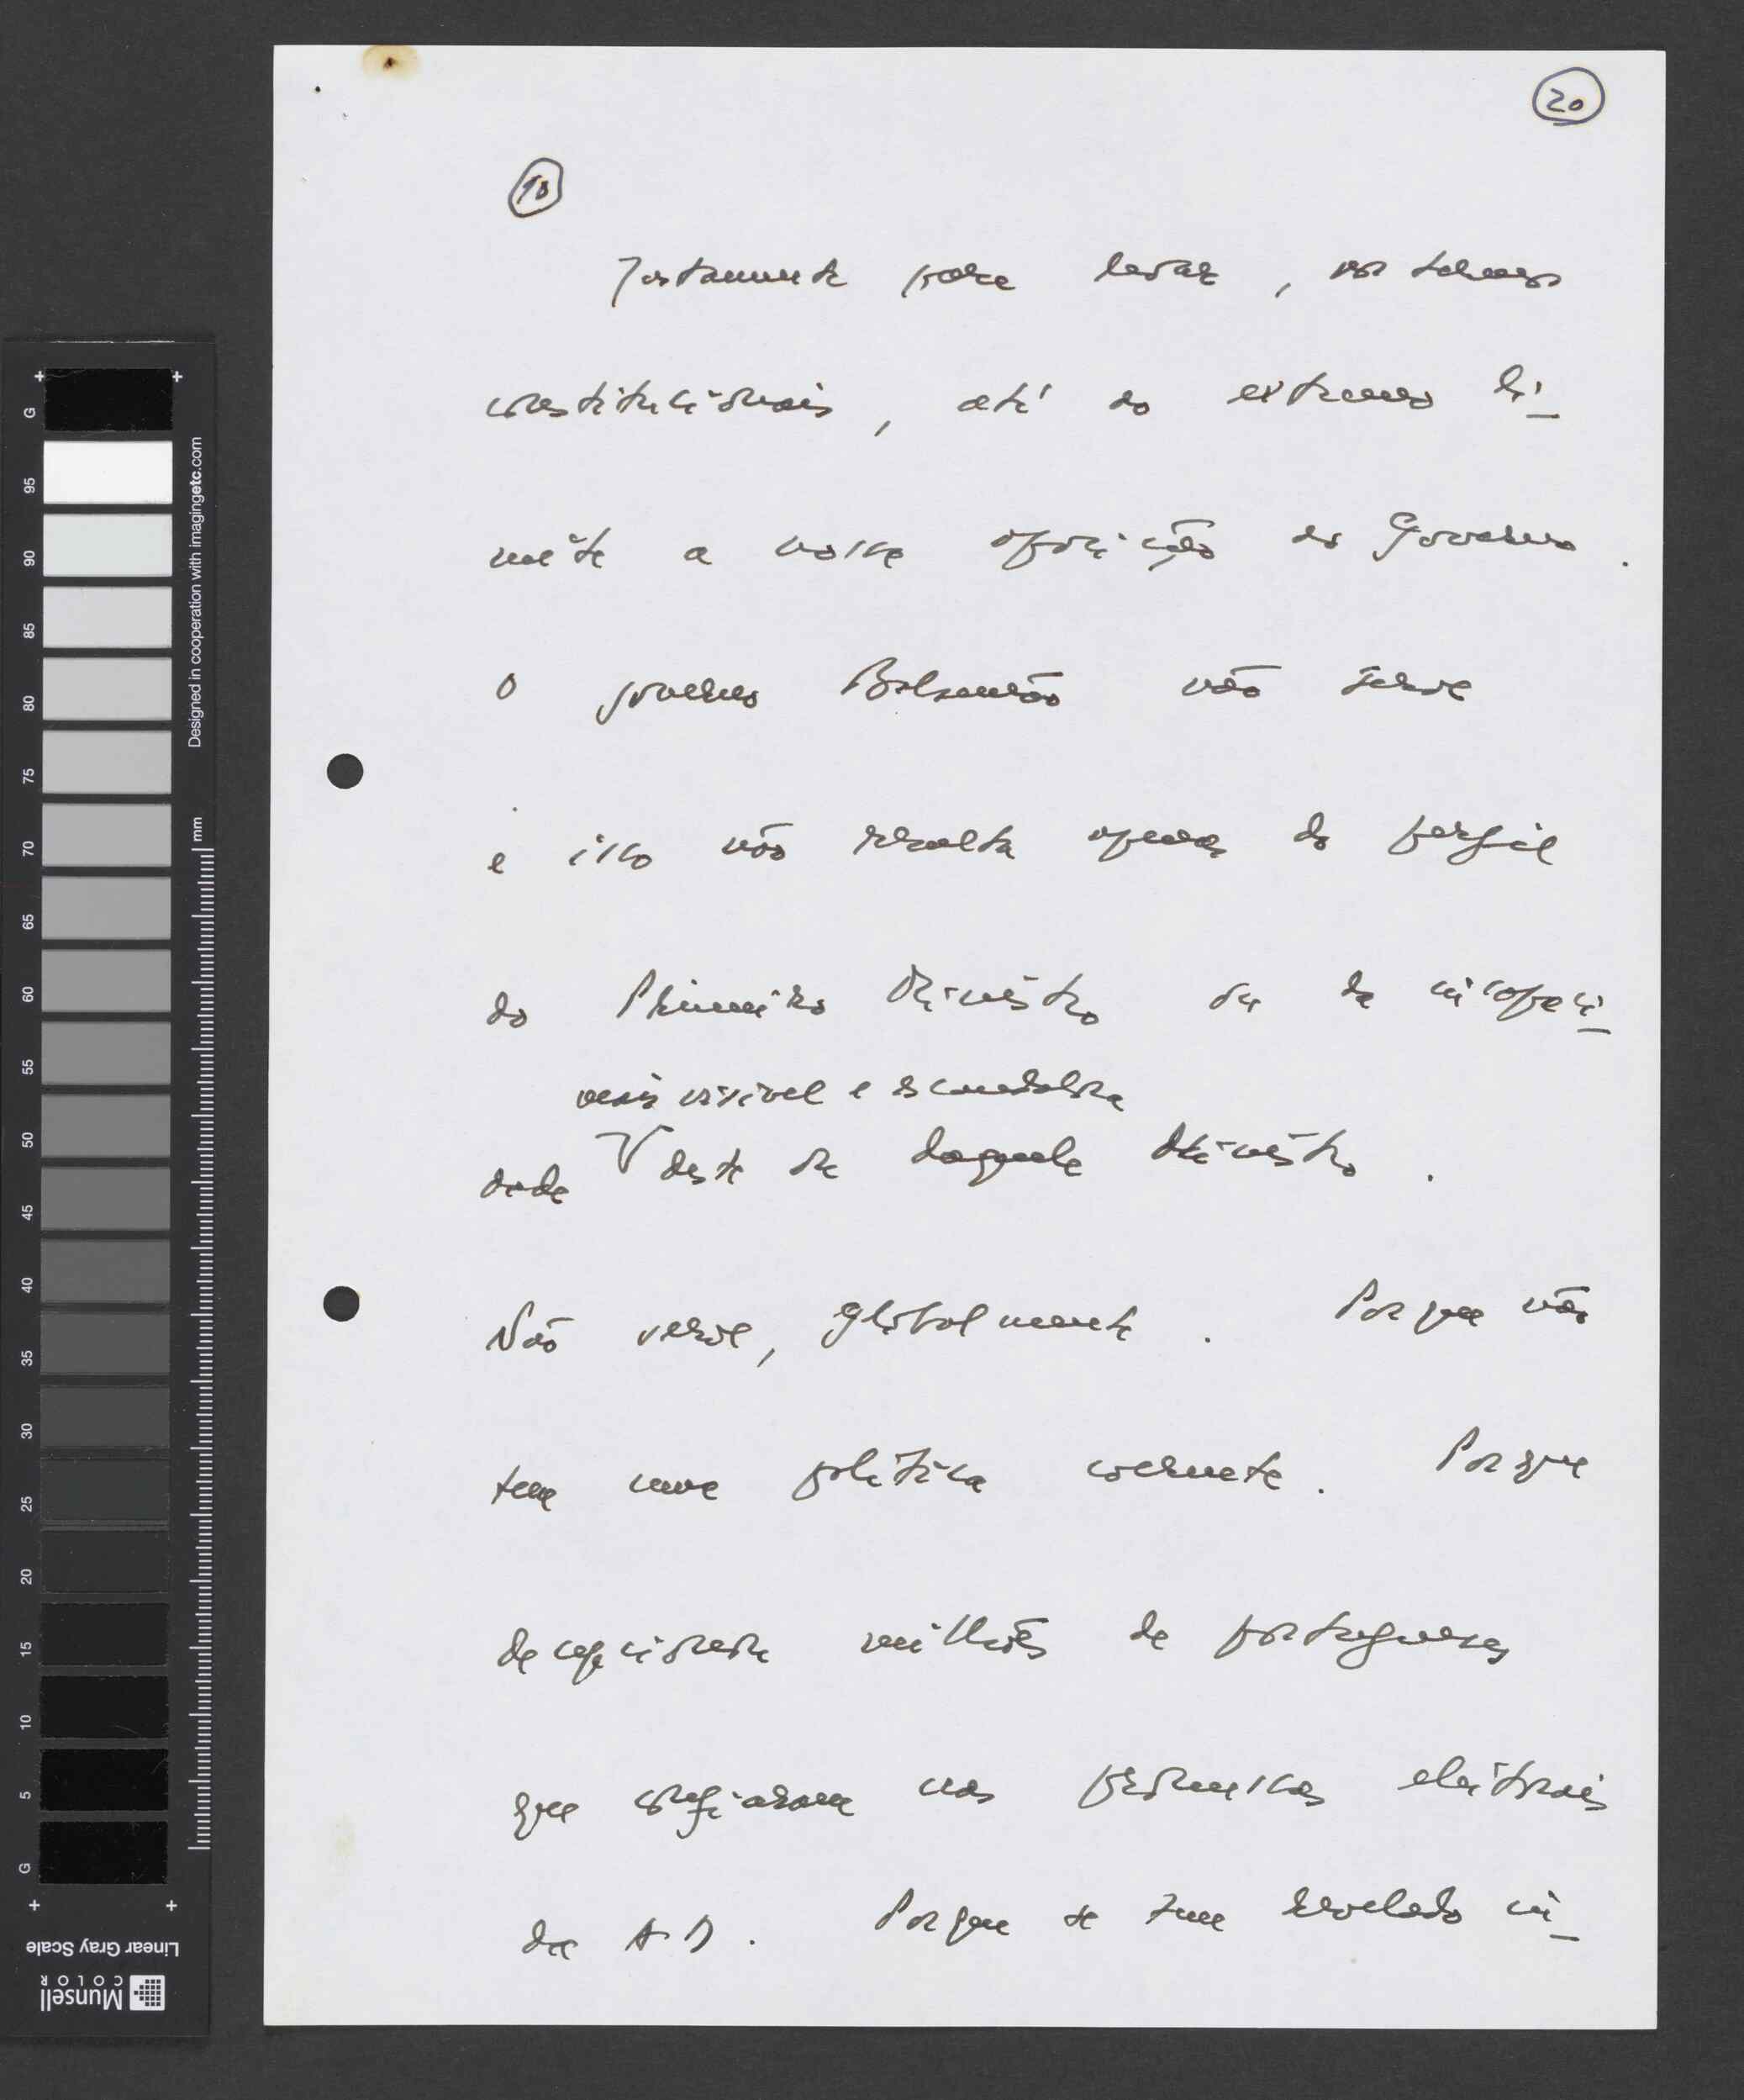 20
10
Justamente para levar, nos termos
constitucionais, até ao extremo li-
mite a nossa oposição ao Governo.
O governo Balsemão não serve
e isso não resulta apenas do perfil
do Primeiro Ministro ou da incapaci-
mais visível e escandalosa
dade V deste ou daquele Ministro.
Não serve, globalmente. Porque não
tem uma política coerente. Porque
decepcionou milhões de portugueses
que confiaram nas promessas eleitorais
da AD. Porque se tem revelado in-
G
95
90
85
80
75
70
65
60
55
50
45
40
35
30
25
20
15
10
5
G
mm
Designed in cooperation with imagingetc.com
Linear Gray Scale
Munsell
COLOR